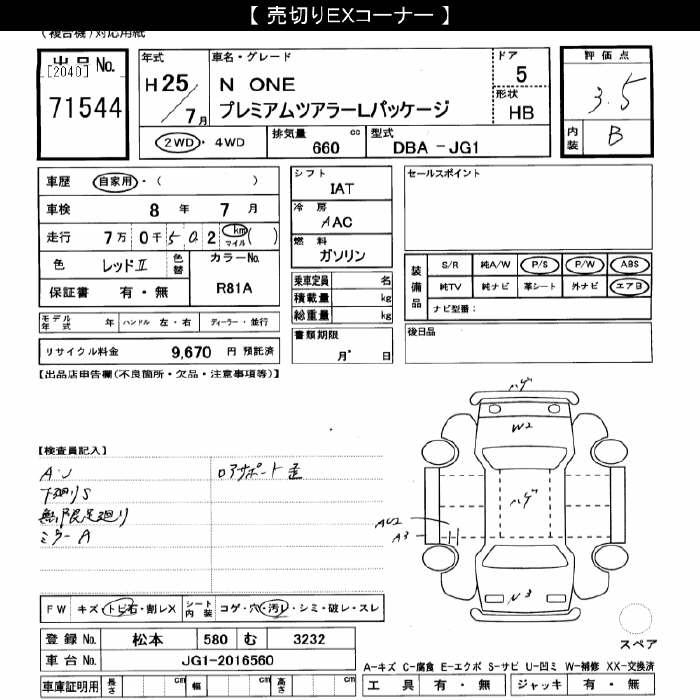 【 売切りEXコーナー 】
(複合機)対応用紙
出品No. [2040] 71544
年式 H25/7月
車名・グレード N ONE プレミアムツアラーLパッケージ
ドア 5
形状 HB
評価点 3.5
内装 B
2WD・4WD
排気量 cc 660
型式 DBA-JG1
車歴 自家用・( )
車検 8年 7月
走行 7万0千502 km マイル( )
色 レッドⅡ 色替 カラーNo. R81A
保証書 有・無
シフト IAT
冷房 AAC
燃料 ガソリン
乗車定員 名
積載量 kg
総重量 kg
書類期限 月 日
セールスポイント
装備品 S/R 純A/W P/S P/W ABS
純TV 純ナビ 革シート 外ナビ エアB
ナビ型番:
後日品
モデル年式 年 ハンドル 左・右 ディーラー・並行
リサイクル料金 9,670 円 預託済
【出品店申告欄(不良箇所・欠品・注意事項等)】
【検査員記入】
A・U ロアサポート歪
下廻りS
無限足廻り
ミラーA
ハゲ
W2
ハゲ
AU2
A3
W3
FW キズ・トビ石・割レX シート内装 コゲ・穴・汚レ・シミ・破レ・スレ
登録No. 松本 580 む 3232
車台No. JG1-2016560
車庫証明用 長さ cm 幅 cm 高さ cm
スペア
A-キズ C-腐食 E-エクボ S-サビ U-凹ミ W-補修 XX-交換済
工具 有・無 ジャッキ 有・無